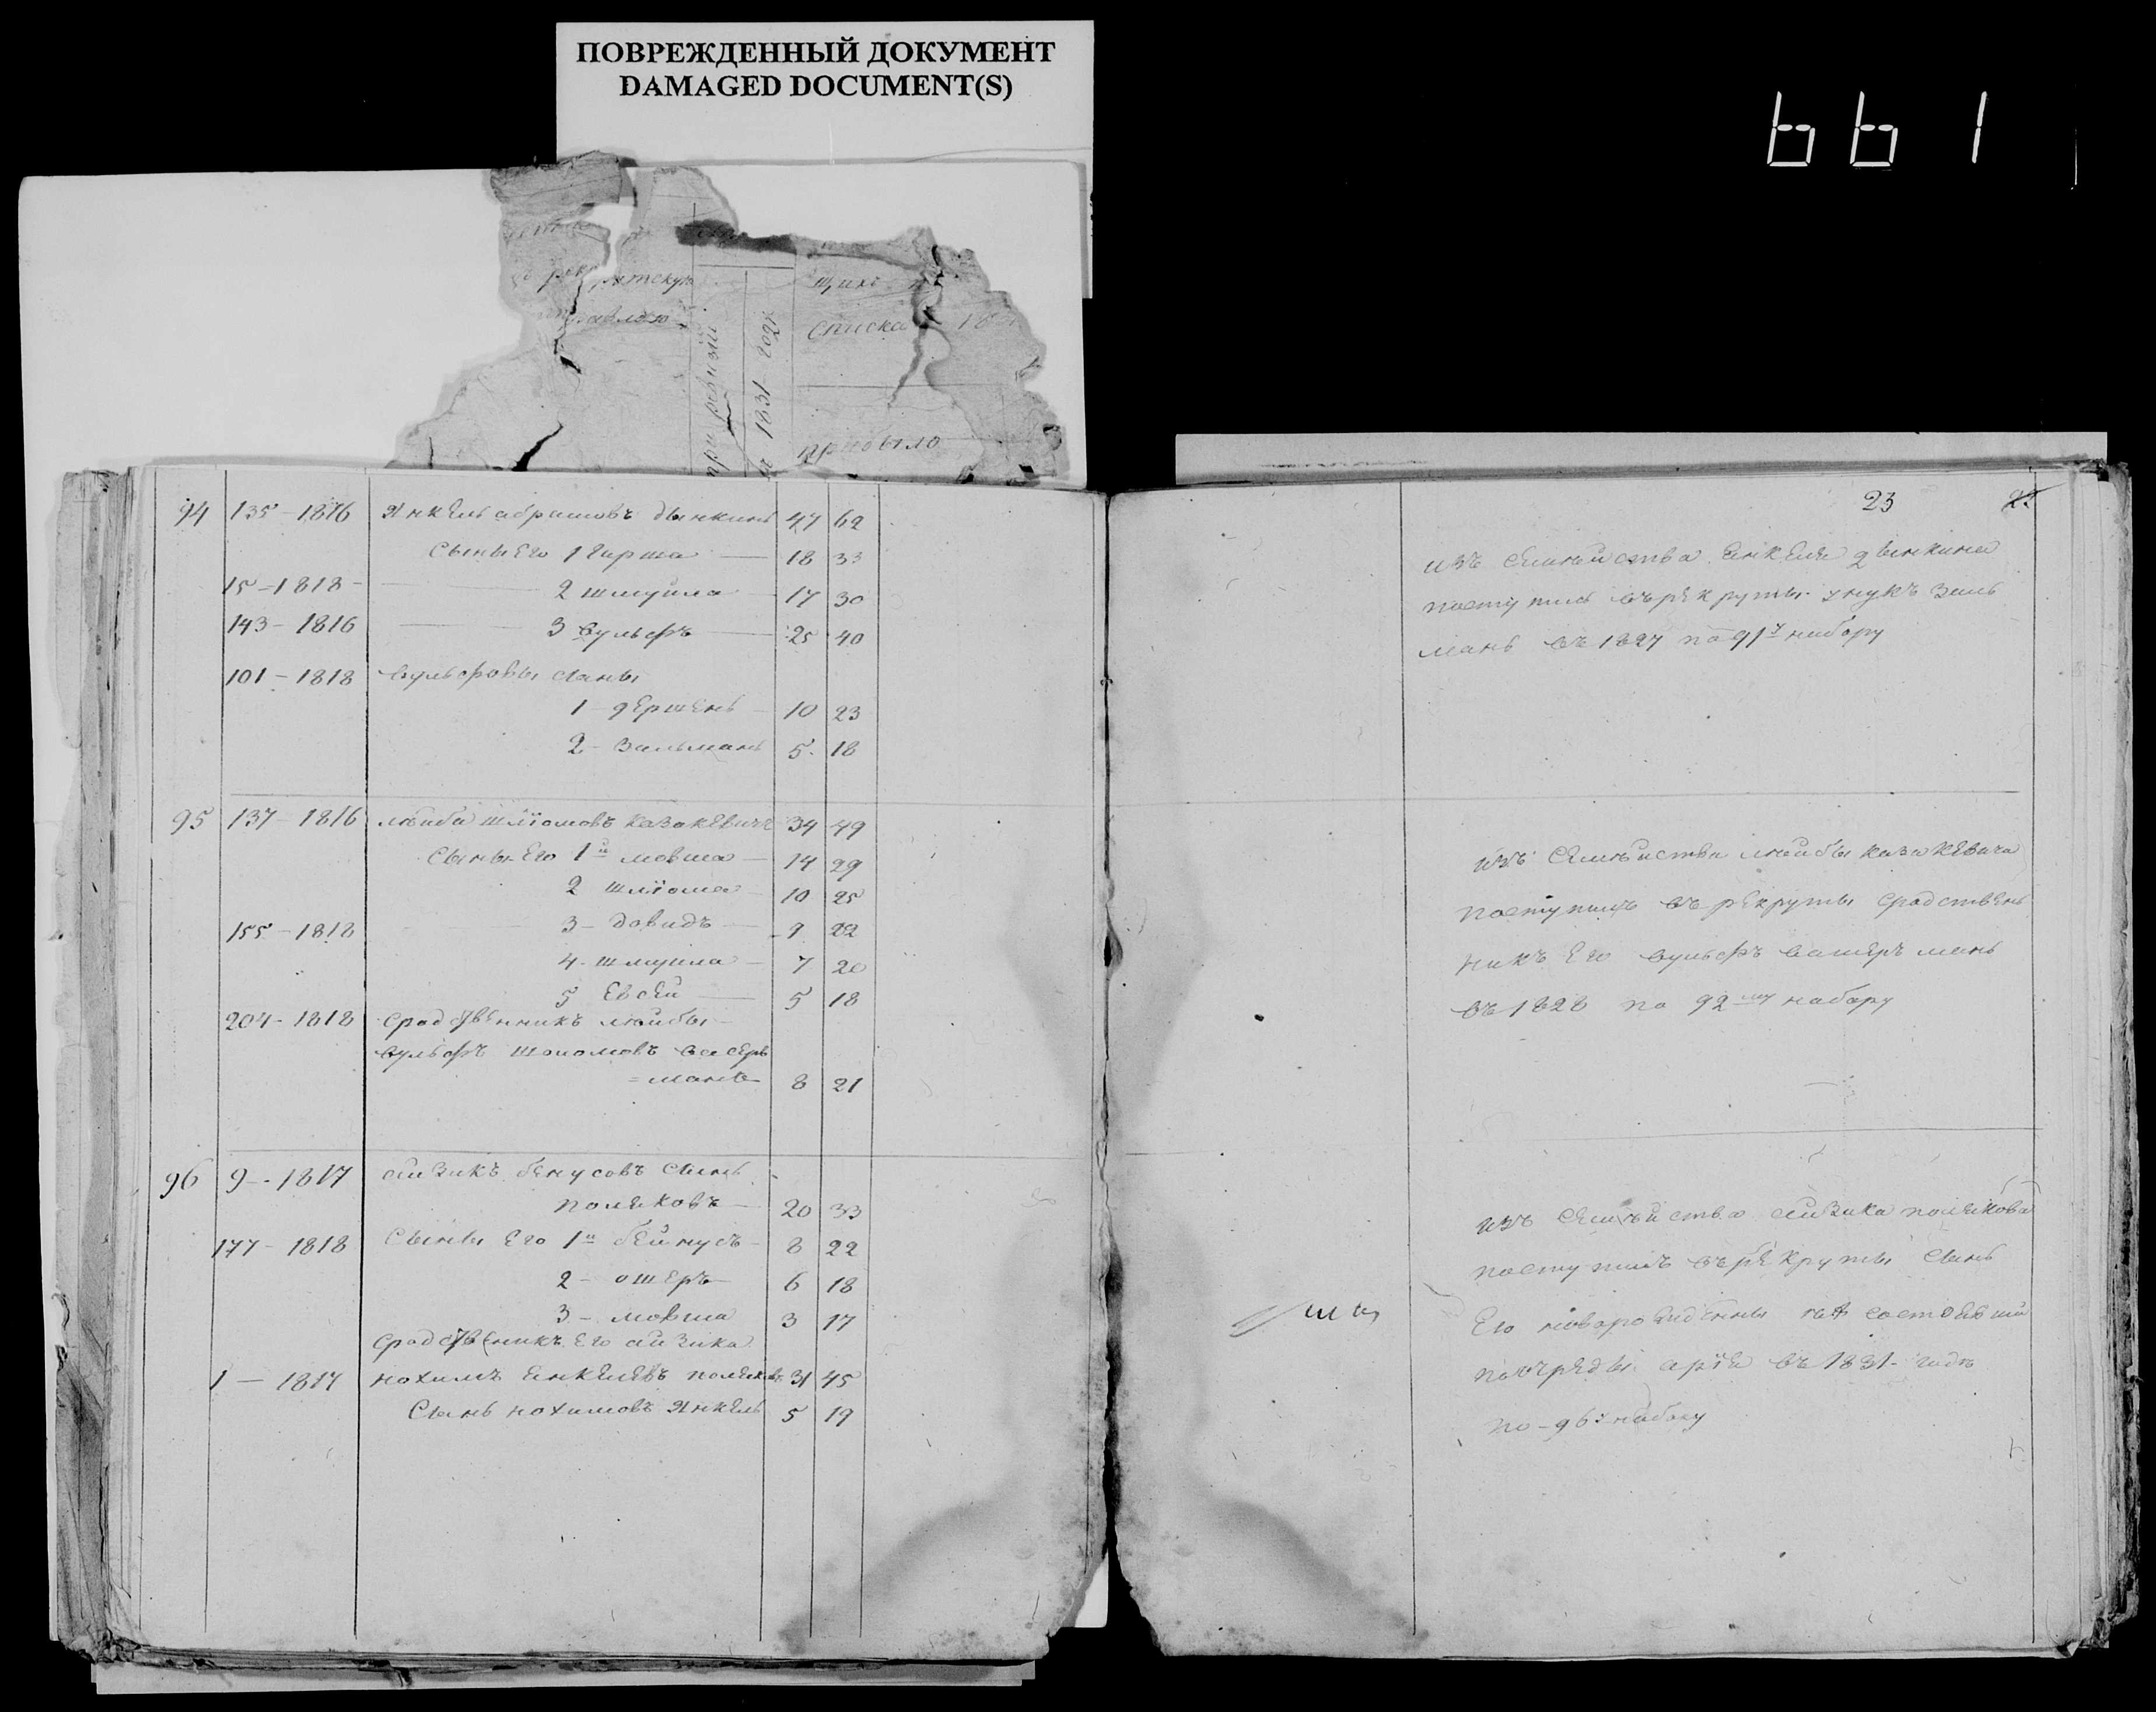 ПОВРЕЖДЕННЫЙ ДОКУМЕНТ
DAMAGED DOCUMENT(S)
661
списка
при ревизіи
1831 года
прибыло
94 135-1816 Янкель абрамовъ дынкинъ 47 62
Сыны Его 1 гирша 18 33
15-1818- 2 шмуйла 17 30
143-1816 3 вульфъ 25 40
101-1818 вульфовы сыны
1 - дершень 10 23
2 - Зальманъ 5 18
95 137-1816 лѣйба шліомовъ казакевичъ 34 49
Сыны Его 1й мовша 14 29
2 шліома 10 25
155-1818 3 - довидъ 9 22
4 - шмуйла 7 20
5 Евсѣй 5 18
204-1818 сродственникъ лѣйбы
вульфъ шоломовъ васеръ
=манъ 8 21
96 9-1817 айзикъ бенусовъ сынъ
поляковъ 20 33
177-1818 Сыны Его 1й бейнусъ 8 22
2 - ошеръ 6 18
3 - мовша 3 17
сродственникъ Его айзика
1-1817 нохимъ янкелевъ поляковъ 31 45
Сынъ нохимовъ Янкель 5 19
23 22
изъ семѣйства янкеля дынкина
поступилъ въ рекруты унукъ заль
манъ въ 1827 по 91у набору
изъ семѣйства лѣйбы казакевича
поступилъ въ рекруты сродствен
никъ Его вульфъ васеръ манъ
въ 1828 по 92му набору
изъ семѣйства айзика полякова
поступилъ въ рекруты сынъ
Его новорожденны
арія въ 1831 годѣ
по - 96у набору